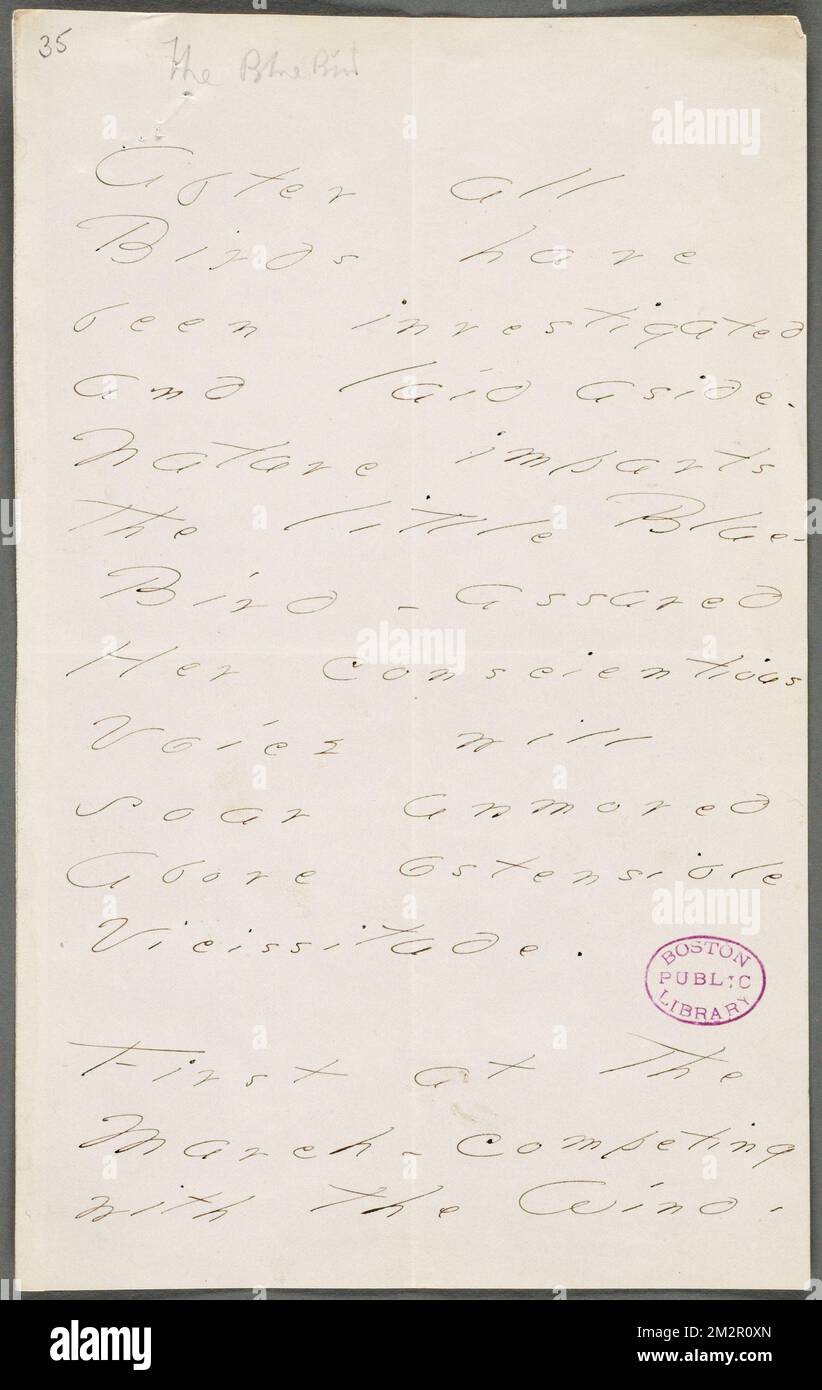 35
The Blue Bird
After all
Birds have
been investigated
and laid aside -
Nature imparts
the little Blue -
Bird - assured
Her conscientious
Voice will
soar unmoved
Above ostensible
Vicissitude.
BOSTON
PUBLIC
LIBRARY
First at the
March - competing
with the Wind -
alamy
alamy
Image ID: 2M2R0XN
www.alamy.com